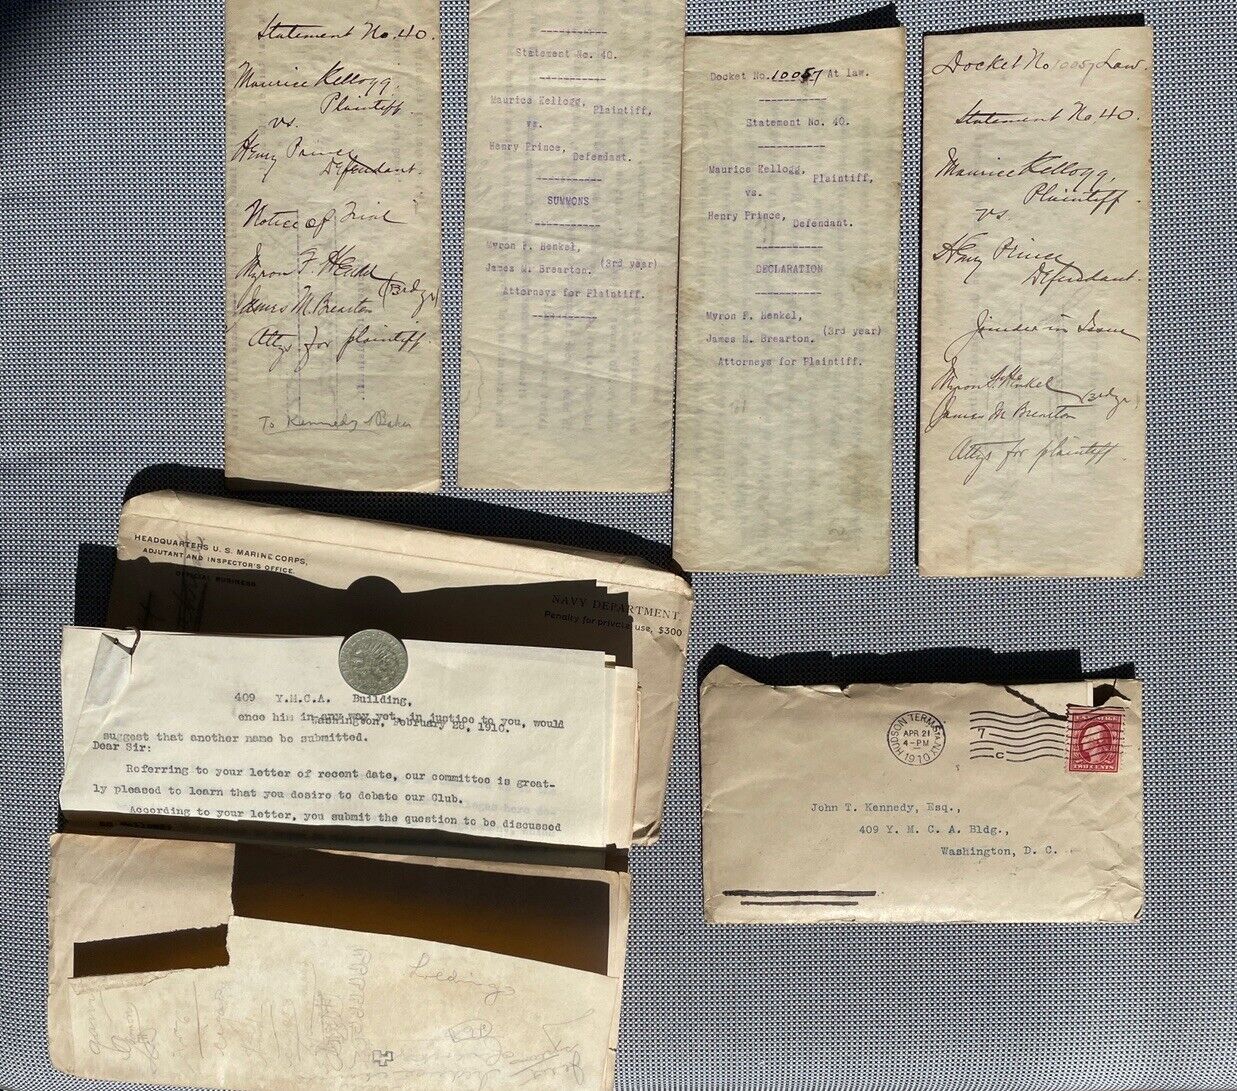 Statement No. 40.
Maurice Kellogg,
Plaintiff
vs.
Henry Prince
Defendant.
Notice of Trial
Myron F. Henkel
(3rd yr)
James M. Brearton
Attys for plaintiff.
To Kennedy & Baker
Statement No. 40.
Maurice Kellogg, Plaintiff,
vs.
Henry Prince, Defendant.
SUMMONS
Myron F. Henkel,
(3rd year)
James M. Brearton.
Attorneys for Plaintiff.
Docket No. 10057 At law.
Statement No. 40.
Maurice Kellogg, Plaintiff,
vs.
Henry Prince, Defendant.
DECLARATION
Myron F. Henkel,
(3rd year)
James M. Brearton.
Attorneys for Plaintiff.
Docket No 10057 Law.
Statement No. 40.
Maurice Kellogg,
Plaintiff.
vs.
Henry Prince
Defendant.
Joinder in Issue
Myron F. Henkel
(3rd yr)
James M Brearton
Attys for plaintiff.
HEADQUARTERS U. S. MARINE CORPS,
ADJUTANT AND INSPECTOR'S OFFICE.
OFFICIAL BUSINESS
NAVY DEPARTMENT.
Penalty for private use, $300
409 Y.M.C.A. Building,
ence him in any way yet, in justice to you, would
Washington, February 28, 1910.
suggest that another name be submitted.
Dear Sir:
Referring to your letter of recent date, our committee is great-
ly pleased to learn that you desire to debate our Club.
According to your letter, you submit the question to be discussed
HUDSON TERM. STA. N.Y.
APR 21
4-PM
1910
7
C
TWO CENTS
John T. Kennedy, Esq.,
409 Y. M. C. A. Bldg.,
Washington, D. C.